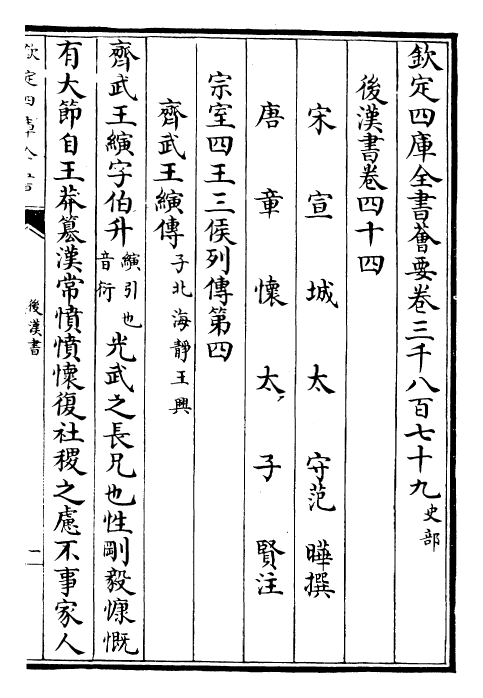 欽定四庫全書薈要卷三千八百七十九 史部
後漢書卷四十四
宋宣城太守范曄撰
唐章懷太子賢注
宗室四王三侯列傳第四
齊武王縯傳 子北海靜王興
齊武王縯字伯升 縯引也音衍 光武之長兄也性剛毅慷慨
有大節自王莽簒漢常憤憤懷復社稷之慮不事家人
欽定四庫全書
後漢書
一